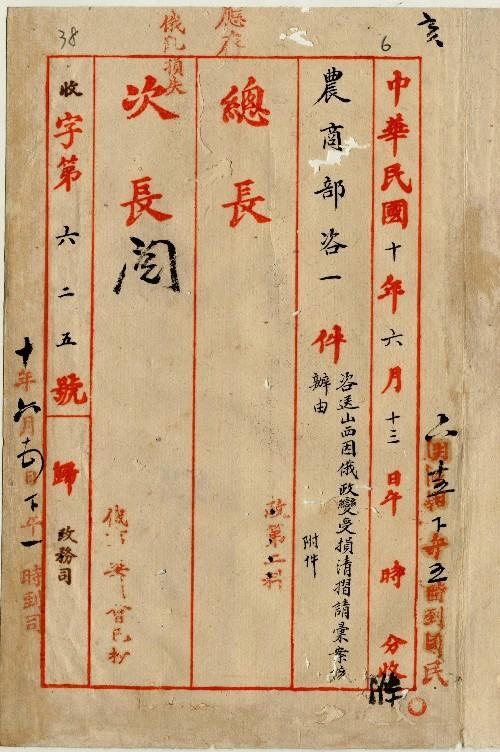 亥
6
38
中華民國十年六月十三日午 時 分收
農商部咨一件
咨送山西因俄政變受損清摺請彙案核
辦由 附件
總長
次長
閱
收字第六二五號
歸 政務司
應存
俄亂損失
政第二科
十年六月 日下午一時到司